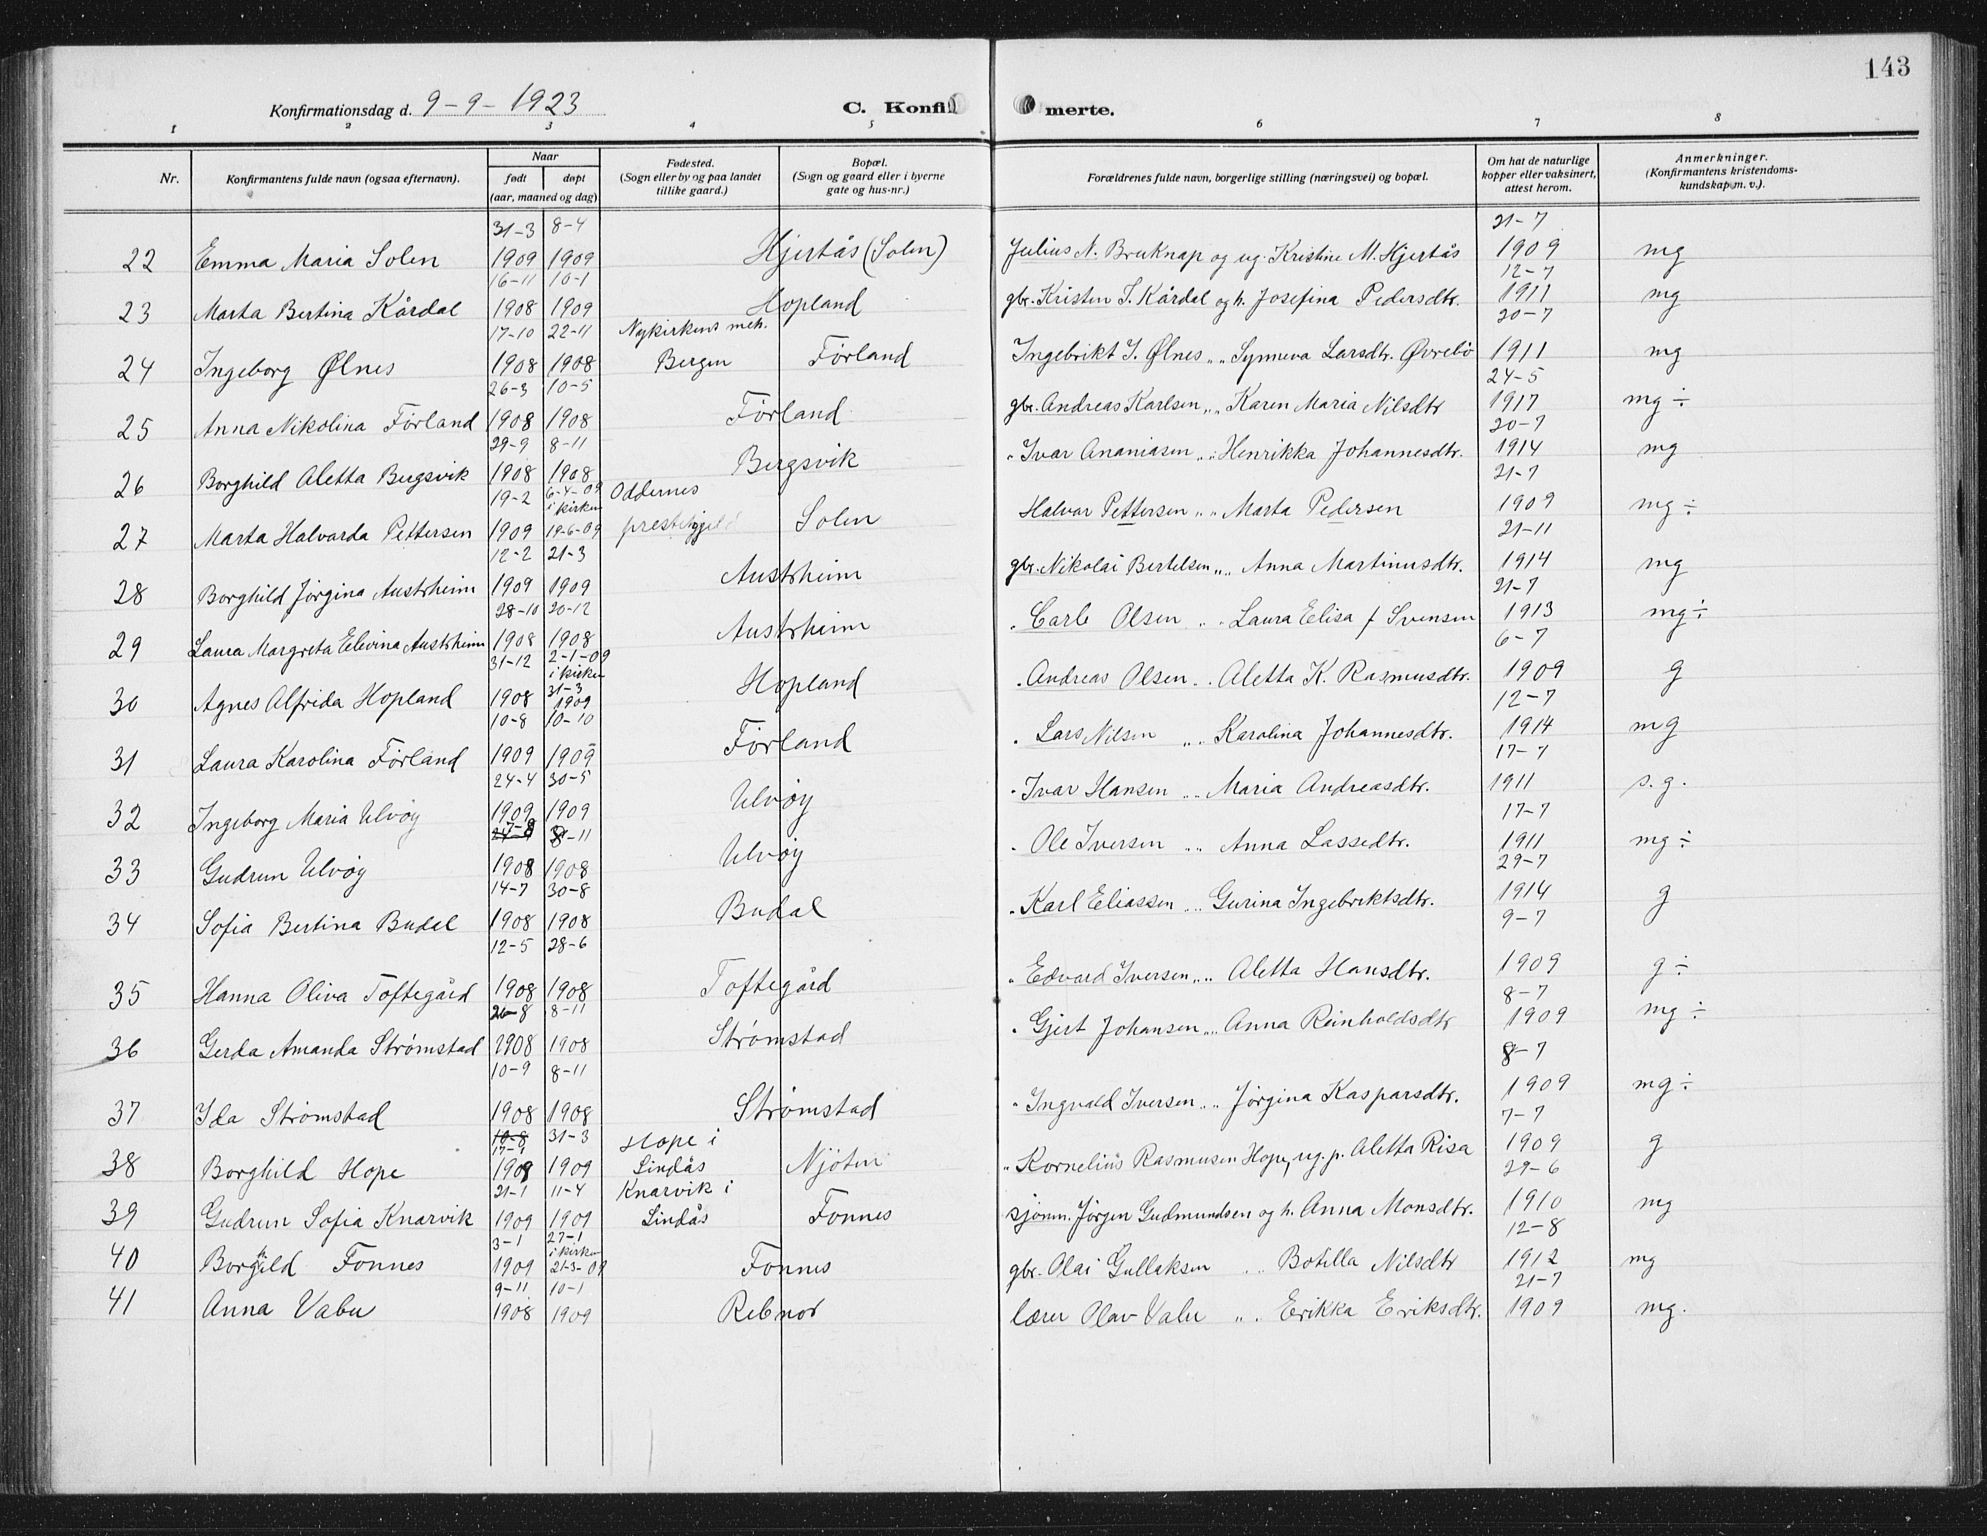 143
Konfirmationsdag d. 9-9-1923 C. Konfirmerte.
1 2 3 4 5 6 7 8
Nr. Konfirmantens fulde navn (ogsaa efternavn). Naar født døpt (aar, maaned og dag) Fødested. (Sogn eller by og paa landet tillike gaard.) Bopæl. (Sogn og gaard eller i byerne gate og hus-nr.) Forældrenes fulde navn, borgerlige stilling (næringsvei) og bopæl. Om hat de naturlige kopper eller vaksinert, attest herom. Anmerkninger. (Konfirmantens kristendoms-kundskap m. v.).
22 Emma Maria Solen 31-3 1909 8-4 1909 Hjertås (Solen) Julius N. Bruknap og ug. Kristine M. Hjertås 21-7 1909 mg
23 Marta Bertina Kårdal 16-11 1908 10-1 1909 Hopland gbr. Kristen S. Kårdal og h. Josefina Pedersdtr. 12-7 1911 mg
24 Ingeborg Ølnes 17-10 1908 22-11 1908 Nykirkens meh. Bergen Førland Ingebrikt I. Ølnes „ „ Synneva Larsdtr. Øvrebø 20-7 1911 mg
25 Anna Nikolina Førland 26-3 1908 10-5 1908 Førland gbr. Andreas Karlsen „ „ Karen Maria Nilsdtr 24-5 1917 mg ÷
26 Borghild Aletta Bergsvik 29-9 1908 8-11 1908 Bergsvik „ Ivar Ananiasen „ „ Henrikka Johannesdtr. 20-7 1914 mg
27 Marta Halvarda Pettersen 19-2 1909 6-4-09 i kirken 19-6-09 Oddernes prestegjeld Solen Halvor Pettersen „ „ Marta Pedersen 21-7 1909 mg ÷
28 Borghild Jørgina Austrheim 12-2 1909 21-3 1909 Austrheim gbr. Nikolai Bertelsen „ „ Anna Martinusdtr. 21-11 1914 mg
29 Laura Margreta Elevina Austrheim 28-10 1908 20-12 1908 Austrheim „ Carle Olsen „ „ Laura Elisa f Svensen 21-7 1913 mg ÷
30 Agnes Alfrida Hopland 31-12 1908 2-1-09 i kirken 31-3 1909 Hopland „ Andreas Olsen „ „ Aletta K. Rasmusdtr. 6-7 1909 g
31 Laura Karolina Førland 10-8 1909 10-10 1909 Førland „ Lars Nilsen „ „ Karolina Johannesdtr. 12-7 1914 mg
32 Ingeborg Maria Ulvøy 24-4 1909 30-5 1909 Ulvøy „ Ivar Hansen „ „ Maria Andreasdtr. 17-7 1911 s.g.
33 Gudrun Ulvøy 1908 8-11 1908 Ulvøy „ Ole Iversen „ „ Anna Lassedtr. 17-7 1911 mg ÷
34 Sofia Bertina Budal 14-7 1908 30-8 1908 Budal „ Karl Eliassen „ „ Gurina Ingebriktsdtr. 29-7 1914 g
35 Hanna Oliva Toftegård 12-5 1908 28-6 1908 Toftegård „ Edvard Iversen „ „ Aletta Hansdtr. 9-7 1909 g ÷
36 Gerda Amanda Strømstad 26-8 1908 8-11 1908 Strømstad „ Gjert Johansen „ „ Anna Reinholdsdtr 8-7 1909 mg ÷
37 Ida Strømstad 10-9 1908 8-11 1908 Strømstad „ Ingvald Iversen „ „ Jørgina Kaspersdtr. 8-7 1909 mg ÷
38 Borghild Hope 10-8 1909 31-3 1909 Hope i Lindås Njøten „ Kornelius Rasmusen Hope, ug. p. Aletta Risa 7-7 1909 g
39 Gudrun Sofia Knarvik 21-1 1909 11-4 1909 Knarvik i Lindås Fonnes sjøm. Jørgen Gudmundsen og h. Anna Monsdtr. 29-6 1910 mg
40 Borghild Fonnes 3-1 1909 27-1 i kirken 21-3-09 Fonnes gbr. Olai Gullaksen „ „ Botilla Nilsdtr 12-8 1912 mg
41 Anna Vabu 9-11 1908 10-1 1909 Rebnor lærer Olav Vabu „ „ Erikka Eriksdtr. 21-7 1909 mg.